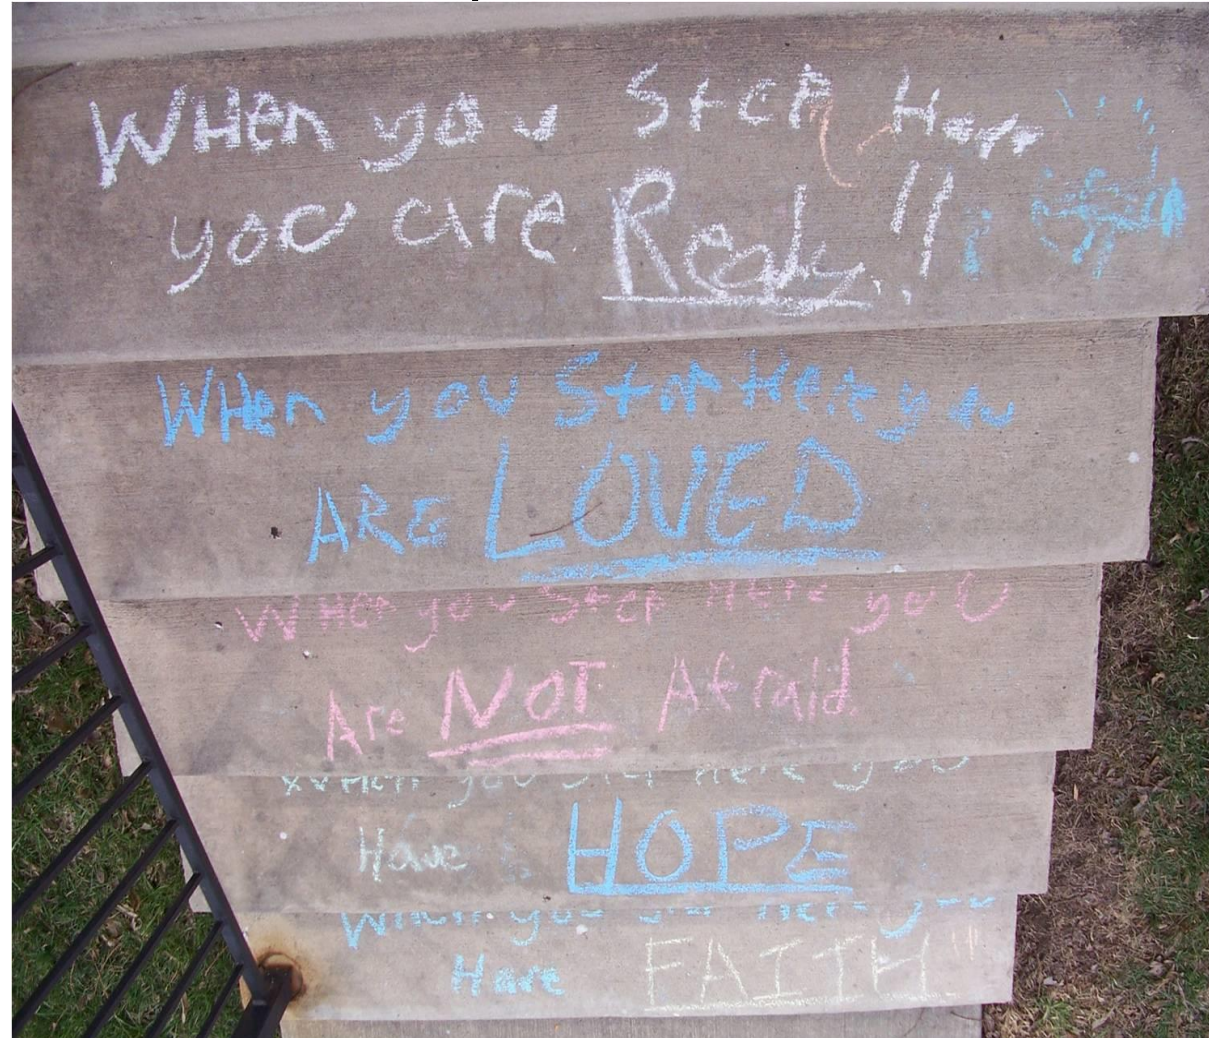 When you Step Here
you are Ready!!
When you Step Here you
ARE LOVED
When you Step Here you
Are NOT Afraid.
When you Step Here you
Have HOPE
When you Step Here you
Have FAITH"